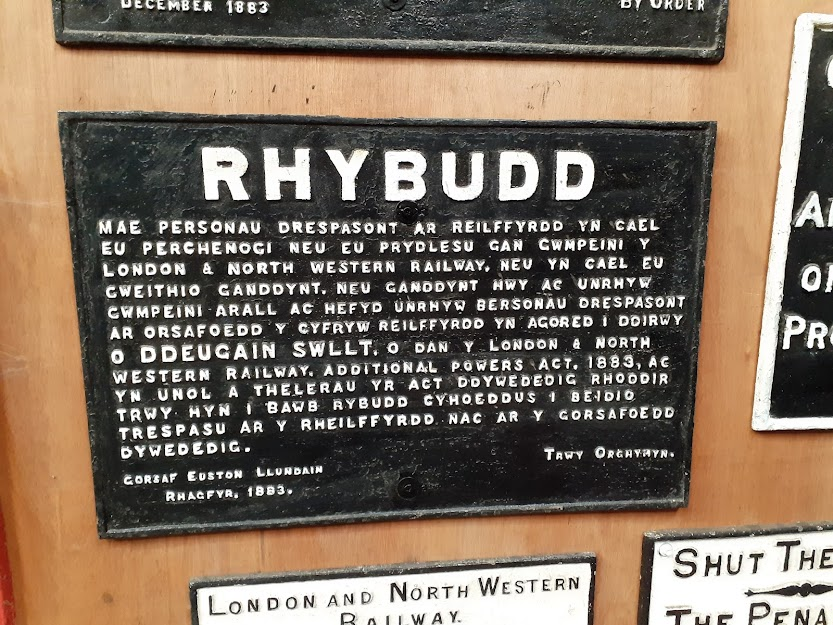 DECEMBER 1883 BY ORDER
RHYBUDD
MAE PERSONAU DRESPASONT AR REILFFYRDD YN CAEL
EU PERCHENOGI NEU EU PRYDLESU GAN GWMPEINI Y
LONDON & NORTH WESTERN RAILWAY, NEU YN CAEL EU
GWEITHIO GANDDYNT, NEU GANDDYNT HWY AC UNRHYW
GWMPEINI ARALL AC HEFYD UNRHYW BERSONAU DRESPASONT
AR ORSAFOEDD Y CYFRYW REILFFYRDD YN AGORED I DDIRWY
O DDEUGAIN SWLLT, O DAN Y LONDON & NORTH
WESTERN RAILWAY, ADDITIONAL POWERS ACT, 1883, AC
YN UNOL A THELERAU YR ACT DDYWEDEDIG RHODDIR
TRWY HYN I BAWB RYBUDD CYHOEDDUS I BEIDIO
TRESPASU AR Y RHEILFFYRDD NAC AR Y GORSAFOEDD
DYWEDEDIG.
TRWY ORCHYMYN.
GORSAF EUSTON LLUNDAIN
RHAGFYR, 1883.
LONDON AND NORTH WESTERN
RAILWAY.
SHUT THE
THE